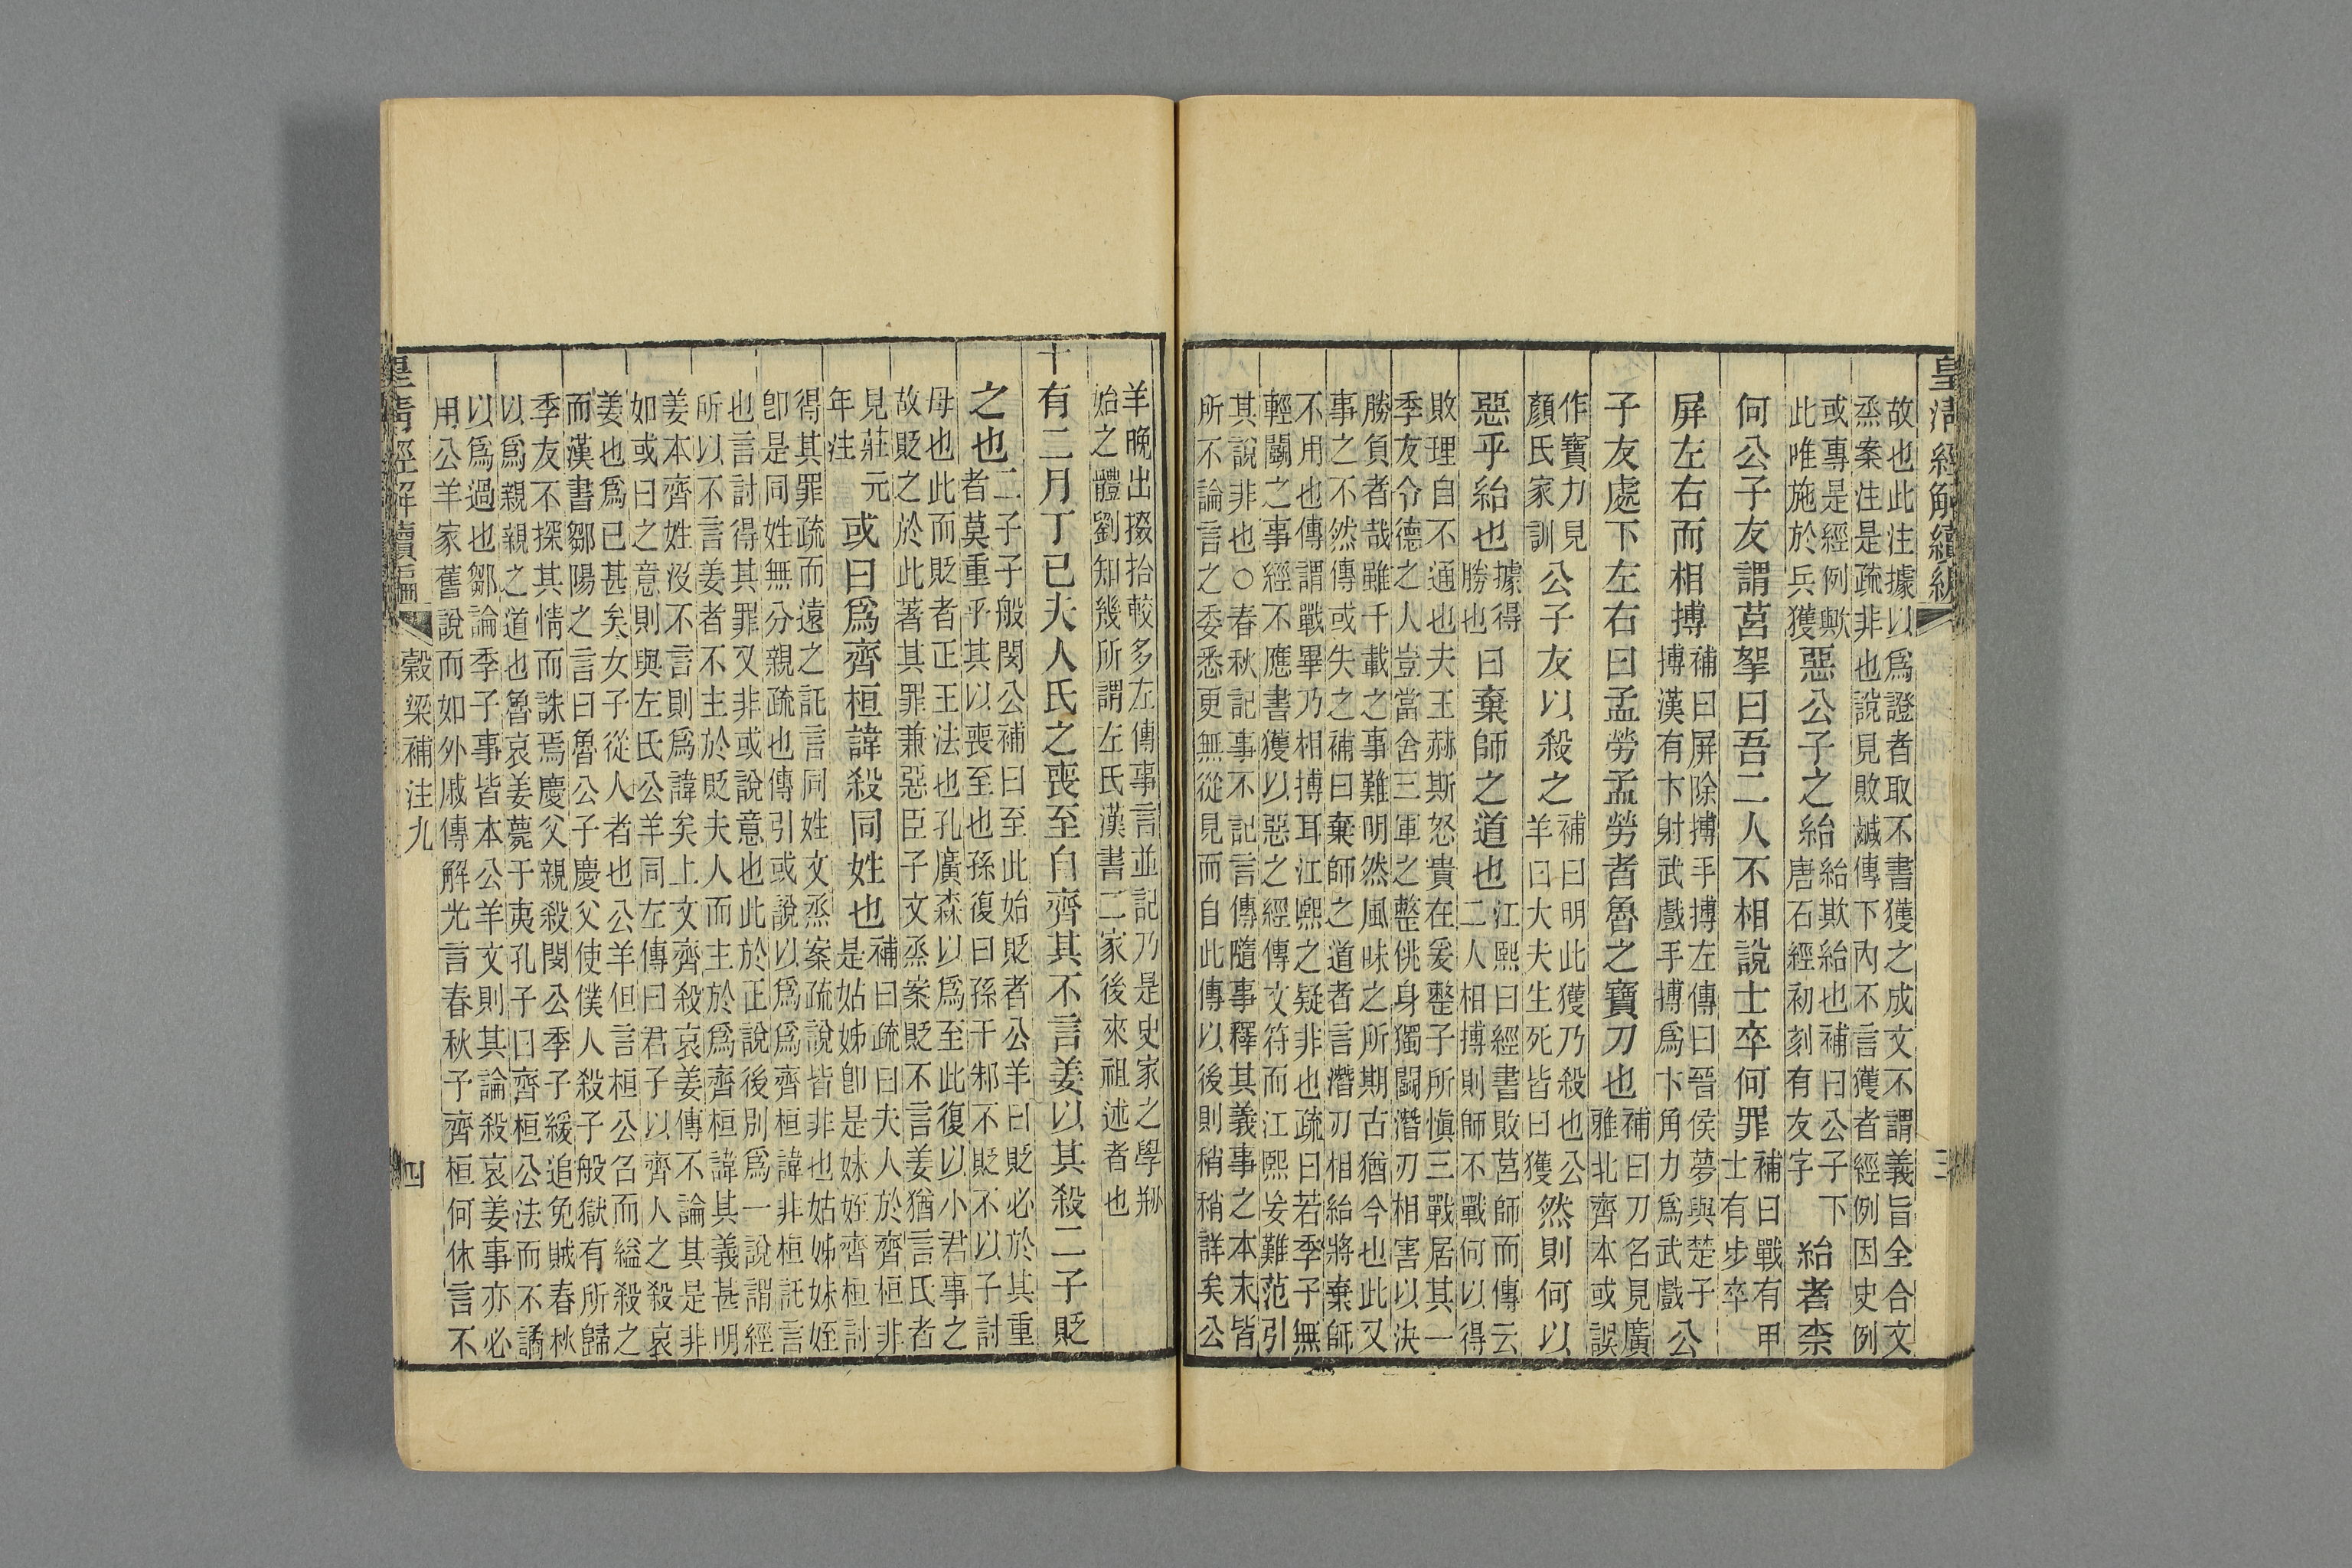 皇清經解續編
三
故也此注據以爲證者取不書獲之成文不謂義旨全合文
烝案注是疏非也說見敗鹹傳下內不言獲者經例因史例
或專是經例歟
此唯施於兵獲
惡公子之紿
紿欺紿也補曰公子下
唐石經初刻有友字
紿者柰
何公子友謂莒挐曰吾二人不相說士卒何罪
補曰戰有甲
士有步卒
屏左右而相搏
補曰屏除搏手搏左傳曰晉侯夢與楚子
搏漢有卞射武戲手搏爲卞角力爲武戲
公
子友處下左右曰孟勞孟勞者魯之寶刀也
補曰刀名見廣
雅北齊本或誤
作寶力見
顏氏家訓
公子友以殺之
補曰明此獲乃殺也公
羊曰大夫生死皆曰獲
然則何以
惡乎紿也
據得
勝也
曰棄師之道也
江熙曰經書敗莒師而傳云
二人相搏則師不戰何以得
敗理自不通也夫王赫斯怒貴在爰整子所愼三戰居其一
季友令德之人豈當舍三軍之整佻身獨鬭潛刃相害以決
勝負者哉雖千載之事難明然風味之所期古猶今也此又
事之不然傳或失之補曰棄師之道者言潛刃相紿將棄師
不用也傳謂戰畢乃相搏耳江熙之疑非也疏曰若季子無
輕鬭之事經不應書獲以惡之經傳文符而江熙妄難范引
其說非也○春秋記事不記言傳隨事釋其義事之本末皆
所不論言之委悉更無從見而自此傳以後則稍稍詳矣公
羊晚出掇拾較多左傳事言並記乃是史家之學刱
始之體劉知幾所謂左氏漢書二家後來祖述者也
十有二月丁巳夫人氏之喪至自齊其不言姜以其殺二子貶
之也
二子子般閔公補曰至此始貶者公羊曰貶必於其重
者莫重乎其以喪至也孫復曰孫于邾不貶不以子討
母也此而貶者正王法也孔廣森以爲至此復以小君事之
故貶之於此著其罪兼惡臣子文烝案貶不言姜猶言氏者
見莊元
年注
或曰爲齊桓諱殺同姓也
補曰疏曰夫人於齊桓非
是姑姊卽是妹姪齊桓討
得其罪疏而遠之託言同姓文烝案疏說皆非也姑姊妹姪
卽是同姓無分親疏也傳引或說以爲爲齊桓諱非桓託言
也言討得其罪又非或說意也此於正說後別爲一說謂經
所以不言姜者不主於貶夫人而主於爲齊桓諱其義甚明
姜本齊姓沒不言則爲諱矣上文齊殺哀姜傳不論其是非
如或曰之意則與左氏公羊同左傳曰君子以齊人之殺哀
姜也爲已甚矣女子從人者也公羊但言桓公召而縊殺之
而漢書鄒陽之言曰魯公子慶父使僕人殺子般獄有所歸
季友不探其情而誅焉慶父親殺閔公季子緩追免賊春秋
以爲親親之道也魯哀姜薨于夷孔子曰齊桓公法而不譎
以爲過也鄒論季子事皆本公羊文則其論殺哀姜事亦必
用公羊家舊說而如外戚傳解光言春秋予齊桓何休言不
皇清經解續編
穀梁補注九
四